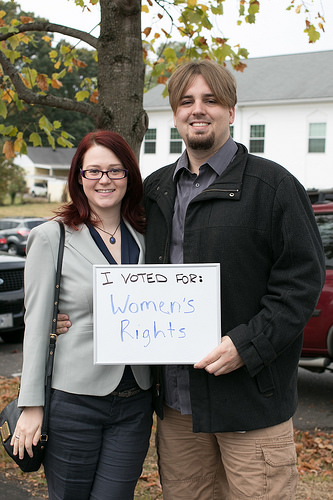 I VOTED FOR:
Women's
Rights